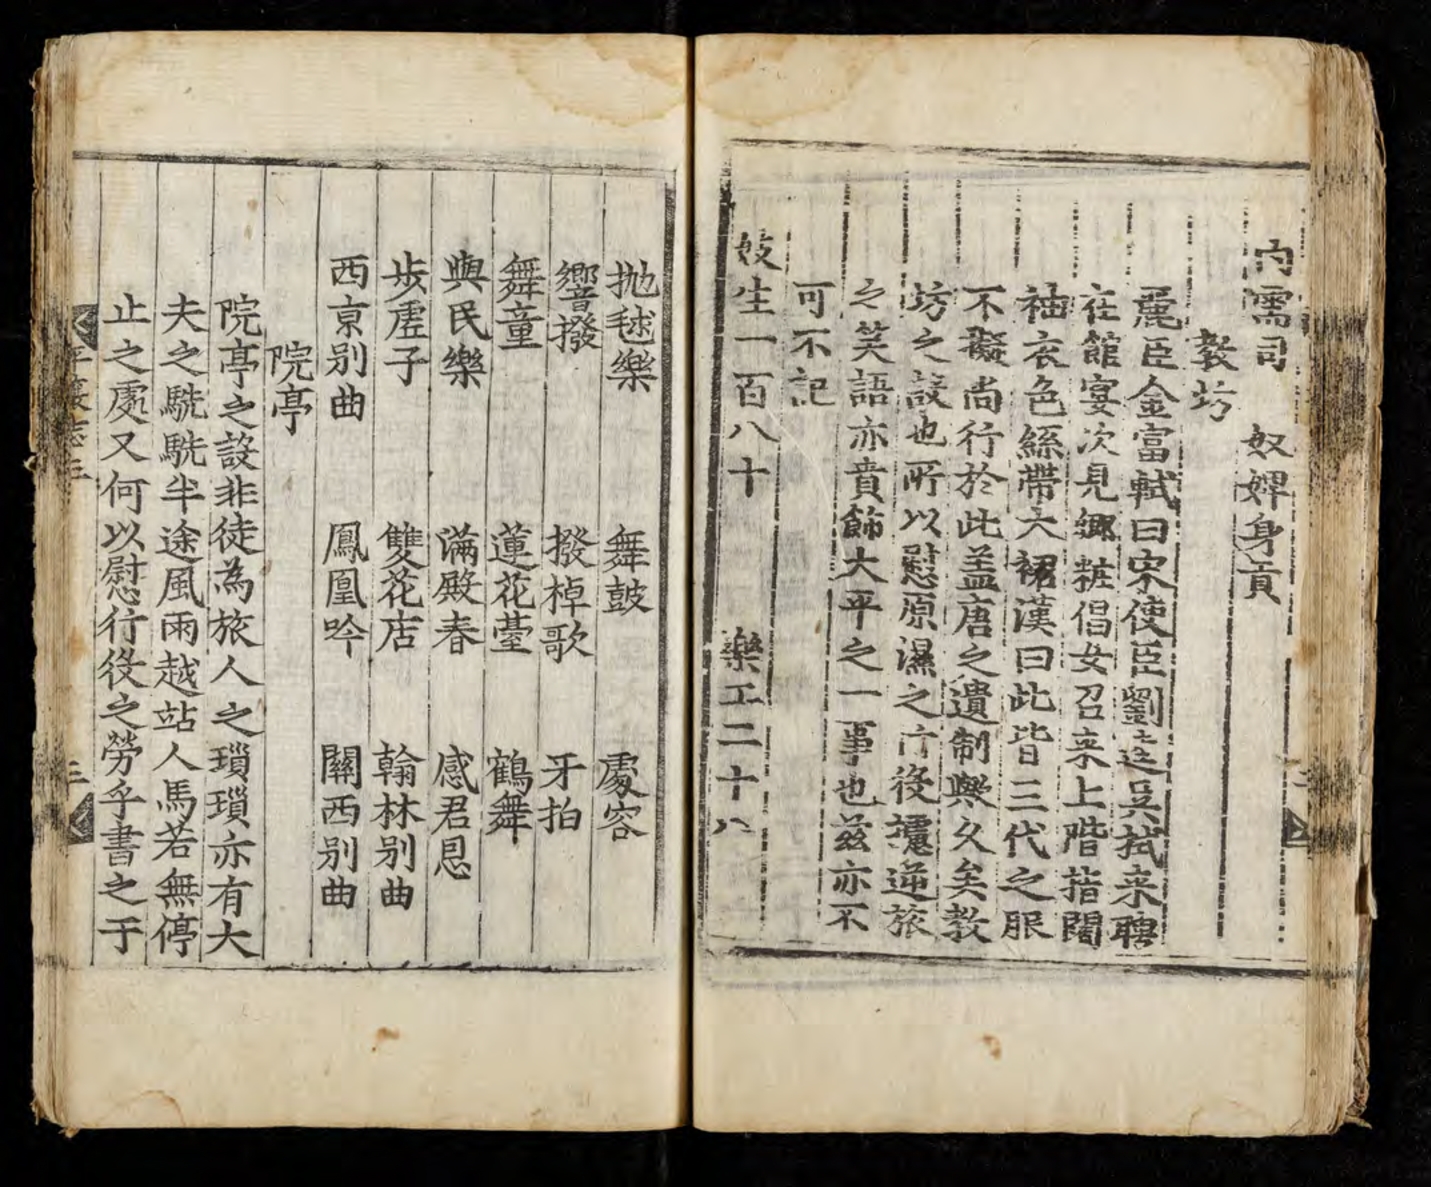 內需司 奴婢身貢
教坊
麗臣金富軾曰宋使臣劉逵吳拭来聘
在館宴次見鄉粧倡女召来上階指闊
袖衣色絲帶大裙漢曰此皆三代之服
不擬尚行於此盖唐之遺制歟久矣教
坊之設也所以慰原濕之行役攄逆旅
之笑語亦賁飾大平之一事也兹亦不
可不記
妓生一百八十 樂工二十八
抛毬樂 舞鼓 處容
響撥 撥棹歌 牙拍
舞童 蓮花臺 鶴舞
與民樂 滿殿春 感君恩
步虛子 雙花店 翰林別曲
西京別曲 鳳凰吟 關西別曲
院亭
院亭之設非徒為旅人之瑣瑣亦有大
夫之駪駪半途風雨越站人馬若無停
止之處又何以慰行役之勞乎書之于
平壤志三 三